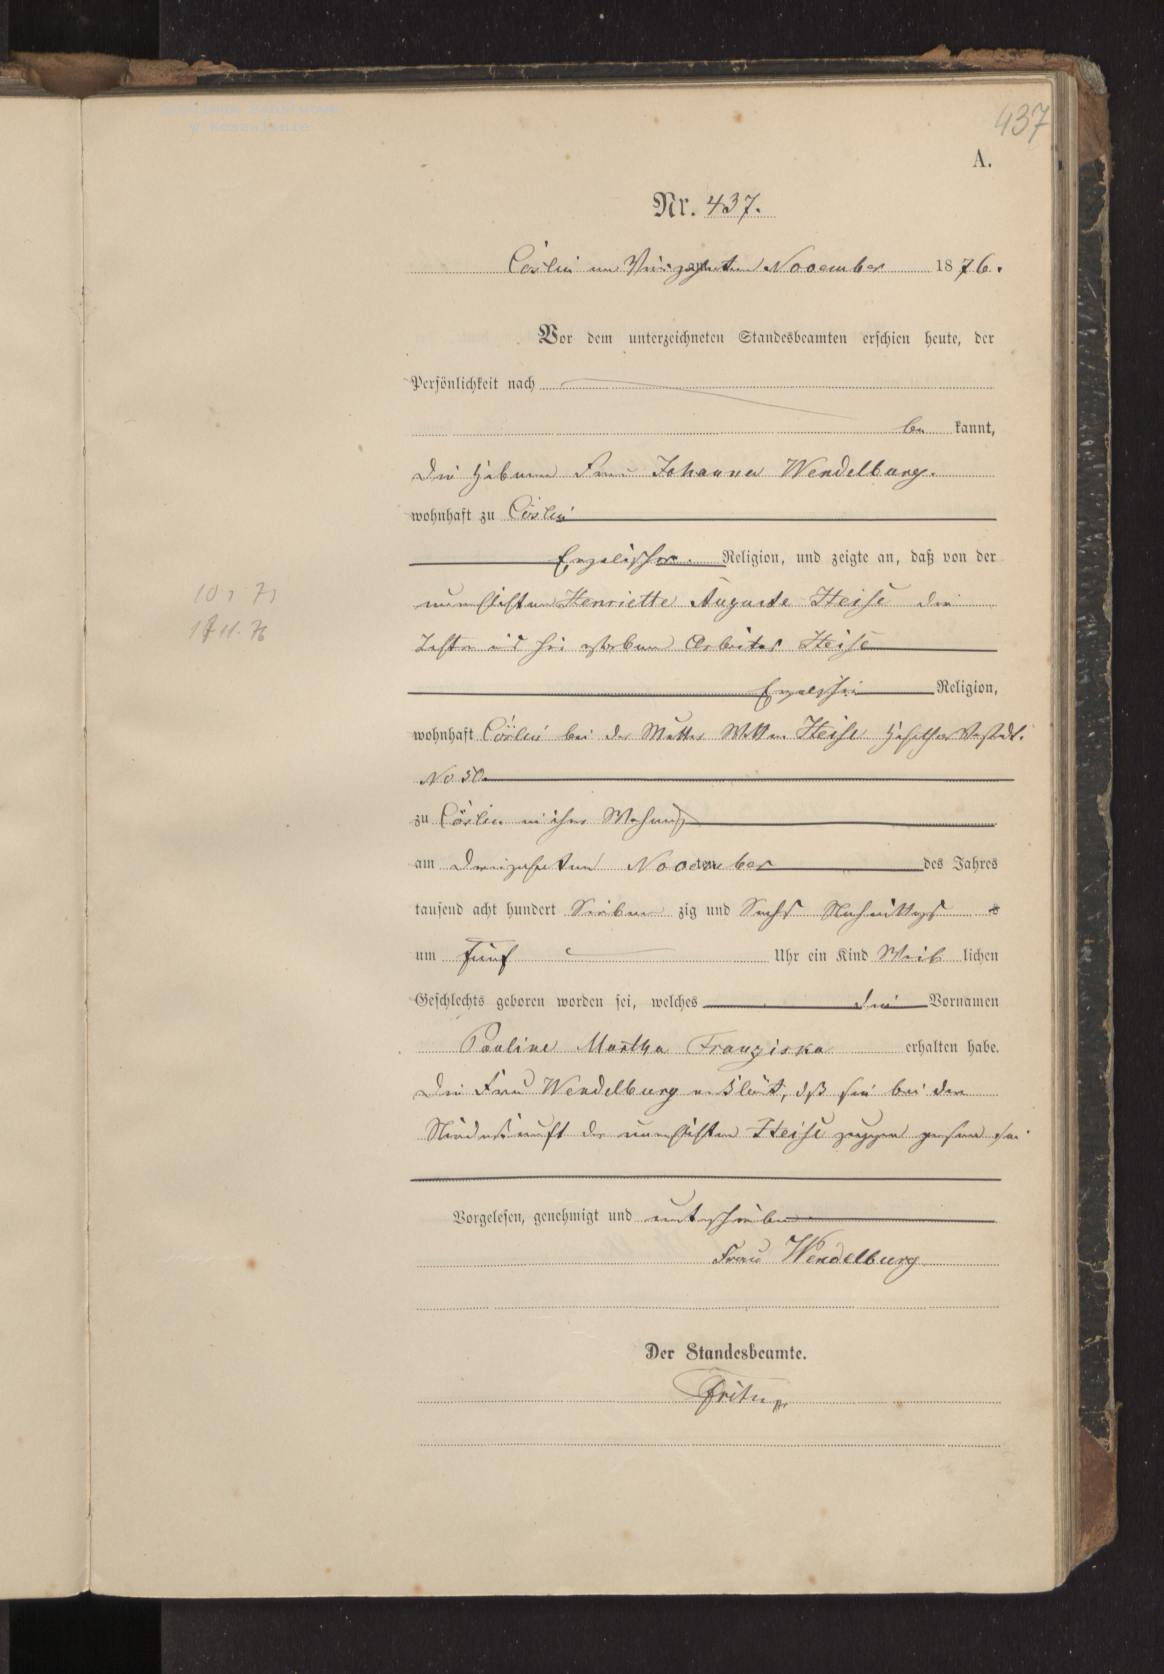 Archiwum Państwowe
w Koszalinie
437
A.
Nr. 437.
Cöslin am Vierzehnten November 1876.
Vor dem unterzeichneten Standesbeamten erschien heute, der
Persönlichkeit nach
be kannt,
die Hebamme Frau Johanna Wendelburg.
wohnhaft zu Cöslin
Evgelischer Religion, und zeigte an, daß von der
unverehelichten Henriette Auguste Heise der
Tochter des verstorbenen Arbeiter Heise
Evgelischer Religion,
wohnhaft Cöslin bei der Mutter Wittwe Heise
No 50.
zu Cöslin in ihrer Wohnung
am Dreizehnten November des Jahres
tausend acht hundert Sieben zig und Sechs Nachmittags
um Fünf Uhr ein Kind Weib lichen
Geschlechts geboren worden sei, welches die Vornamen
Pauline Martha Franziska erhalten habe.
Die Frau Wendelburg erklärt, daß sie bei der
Niederkunft der unverehelichten Heise zugegen gewesen sei
Vorgelesen, genehmigt und unterschrieben
Frau Wendelburg
Der Standesbeamte.